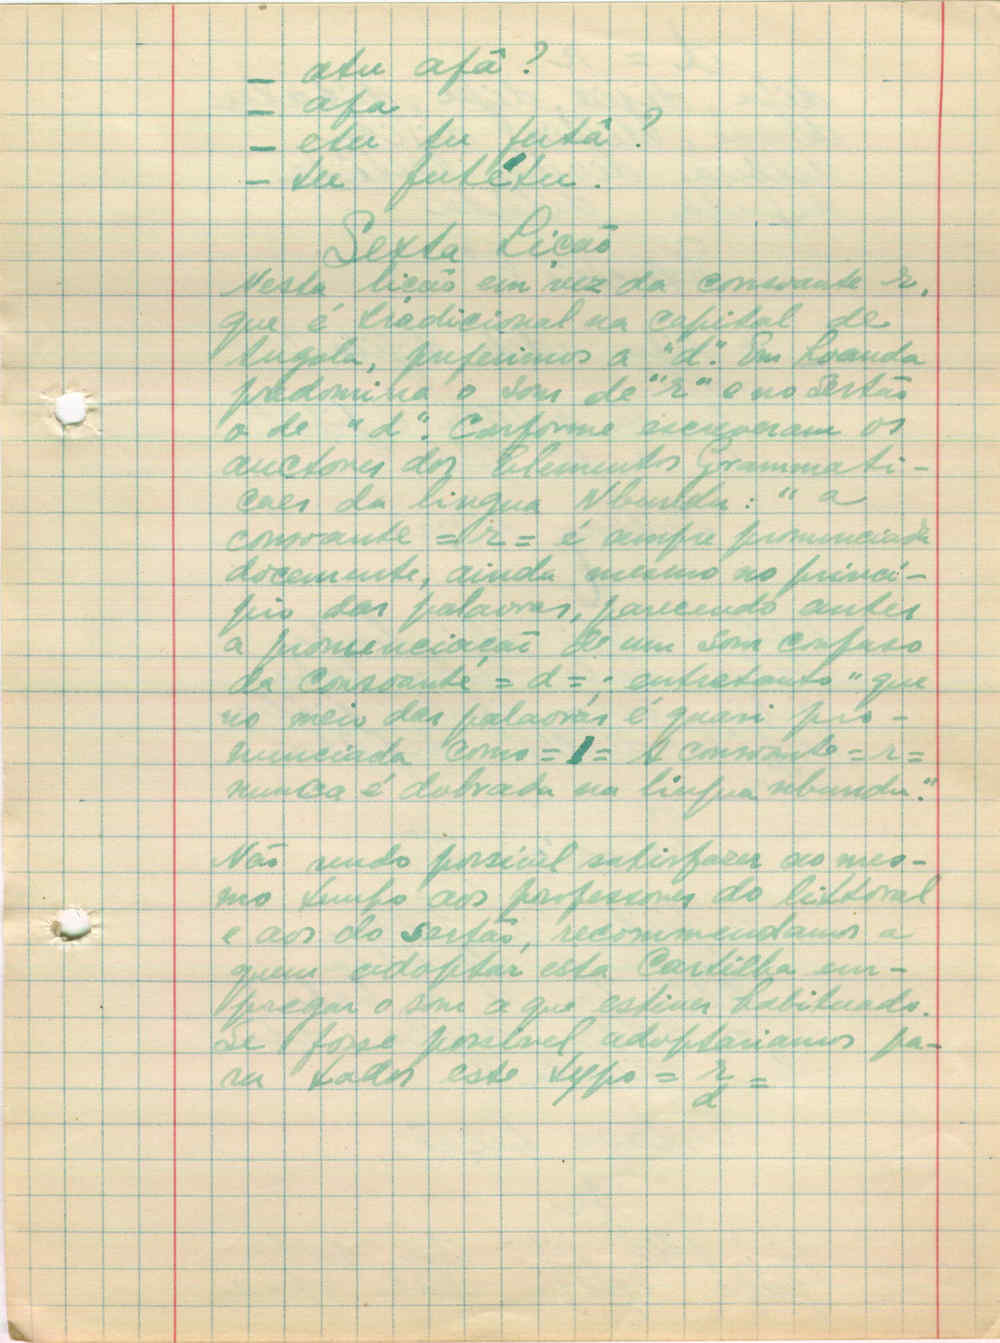 — atu afâ?
— afa
— etu tu futâ?
— tu futétu.
Sexta Lição
Nesta lição em vez da consoante r,
que é tradicional na capital de
Angola, preferimos a "d". Em Loanda
predomina o som de "r" e no Sertão
o de "d". Conforme escreveram os
auctores dos Elementos Grammati-
caes da lingua Nbundu: "a
consoante = r = é sempre pronunciada
docemente, ainda mesmo no princi-
pio das palavras, parecendo antes
a pronunciação de um som confuso
da consoante = d =; entretanto "que
no meio das palavras é quasi pro-
nunciada como = l = A consoante = r =
nunca é dobrada na lingua nbundu."
Não sendo possivel satisfazer ao mes-
mo tempo aos professores do littoral
e aos do Sertão, recommendamos a
quem adoptar esta Cartilha em-
pregar o som a que estiver habituado.
Se fosse possivel adoptariamos pa-
ra todos este typo = r
d =